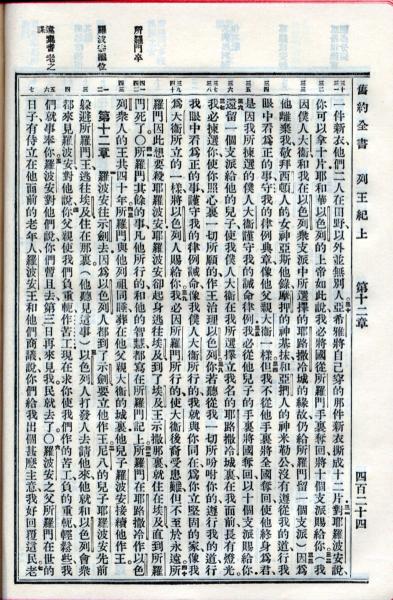 舊約全書 列王紀上 第十二章 四百二十四
一件新衣他們二人在田野以外並無別人亞希雅將自己穿的那件新衣撕成十二片對耶羅波安說
你可以拿十片耶和華以色列的上帝如此說我必將國從所羅門手裏奪回將十個支派賜給你（我
因僕人大衛和我在以色列眾支派中所選擇的耶路撒冷城的緣故仍給所羅門留一個支派）因為
他離棄我敬拜西頓人的女神亞斯他錄摩押的神基抹和亞捫人的神米勒公沒有遵從我的道行我
眼中看為正的事守我的律例典章像他父親大衛一樣但我不從他手裏將全國奪回使他終身為君
是因我所揀選的僕人大衛謹守我的誡命律例我必從他兒子的手裏將國奪回以十個支派賜給你
還留一個支派給他的兒子使我僕人大衛在我所選擇立我名的耶路撒冷城裏在我面前長有燈光
我必揀選你使你照心裏一切所願的作王治理以色列你若聽從我一切所吩咐你的遵行我的道行
我眼中看為正的事謹守我的律例誡命像我僕人大衛所行的我就與你同在為你立堅固的家像我
為大衛所立的一樣將以色列人賜給你我必因所羅門所行的使大衛後裔受患難但不至於永遠所
羅門因此想要殺耶羅波安耶羅波安卻起身逃往埃及到了埃及王示撒那裏就住在埃及直到所羅
所羅門卒
門死了○所羅門其餘的事凡他所行的和他的智慧都寫在所羅門記上所羅門在耶路撒冷作以色
列眾人的王共四十年所羅門與他列祖同睡葬在他父親大衛的城裏他兒子羅波安接續他作王
羅波安繼位
第十二章 羅波安往示劍去因為以色列人都到了示劍要立他作王尼八的兒子耶羅波安先前
躲避所羅門王逃往埃及住在那裏（他聽見這事）以色列人打發人去請他來他就和以色列會眾
都來見羅波安對他說你父親使我們負重軛作苦工現在求你使我們作的苦工負的重軛輕鬆些我
們就事奉你羅波安對他們說你們暫且去第三日再來見我民就去了○羅波安之父所羅門在世的
日子有侍立在他面前的老年人羅波安王和他們商議說你們給我出個甚麼主意我好回覆這民老